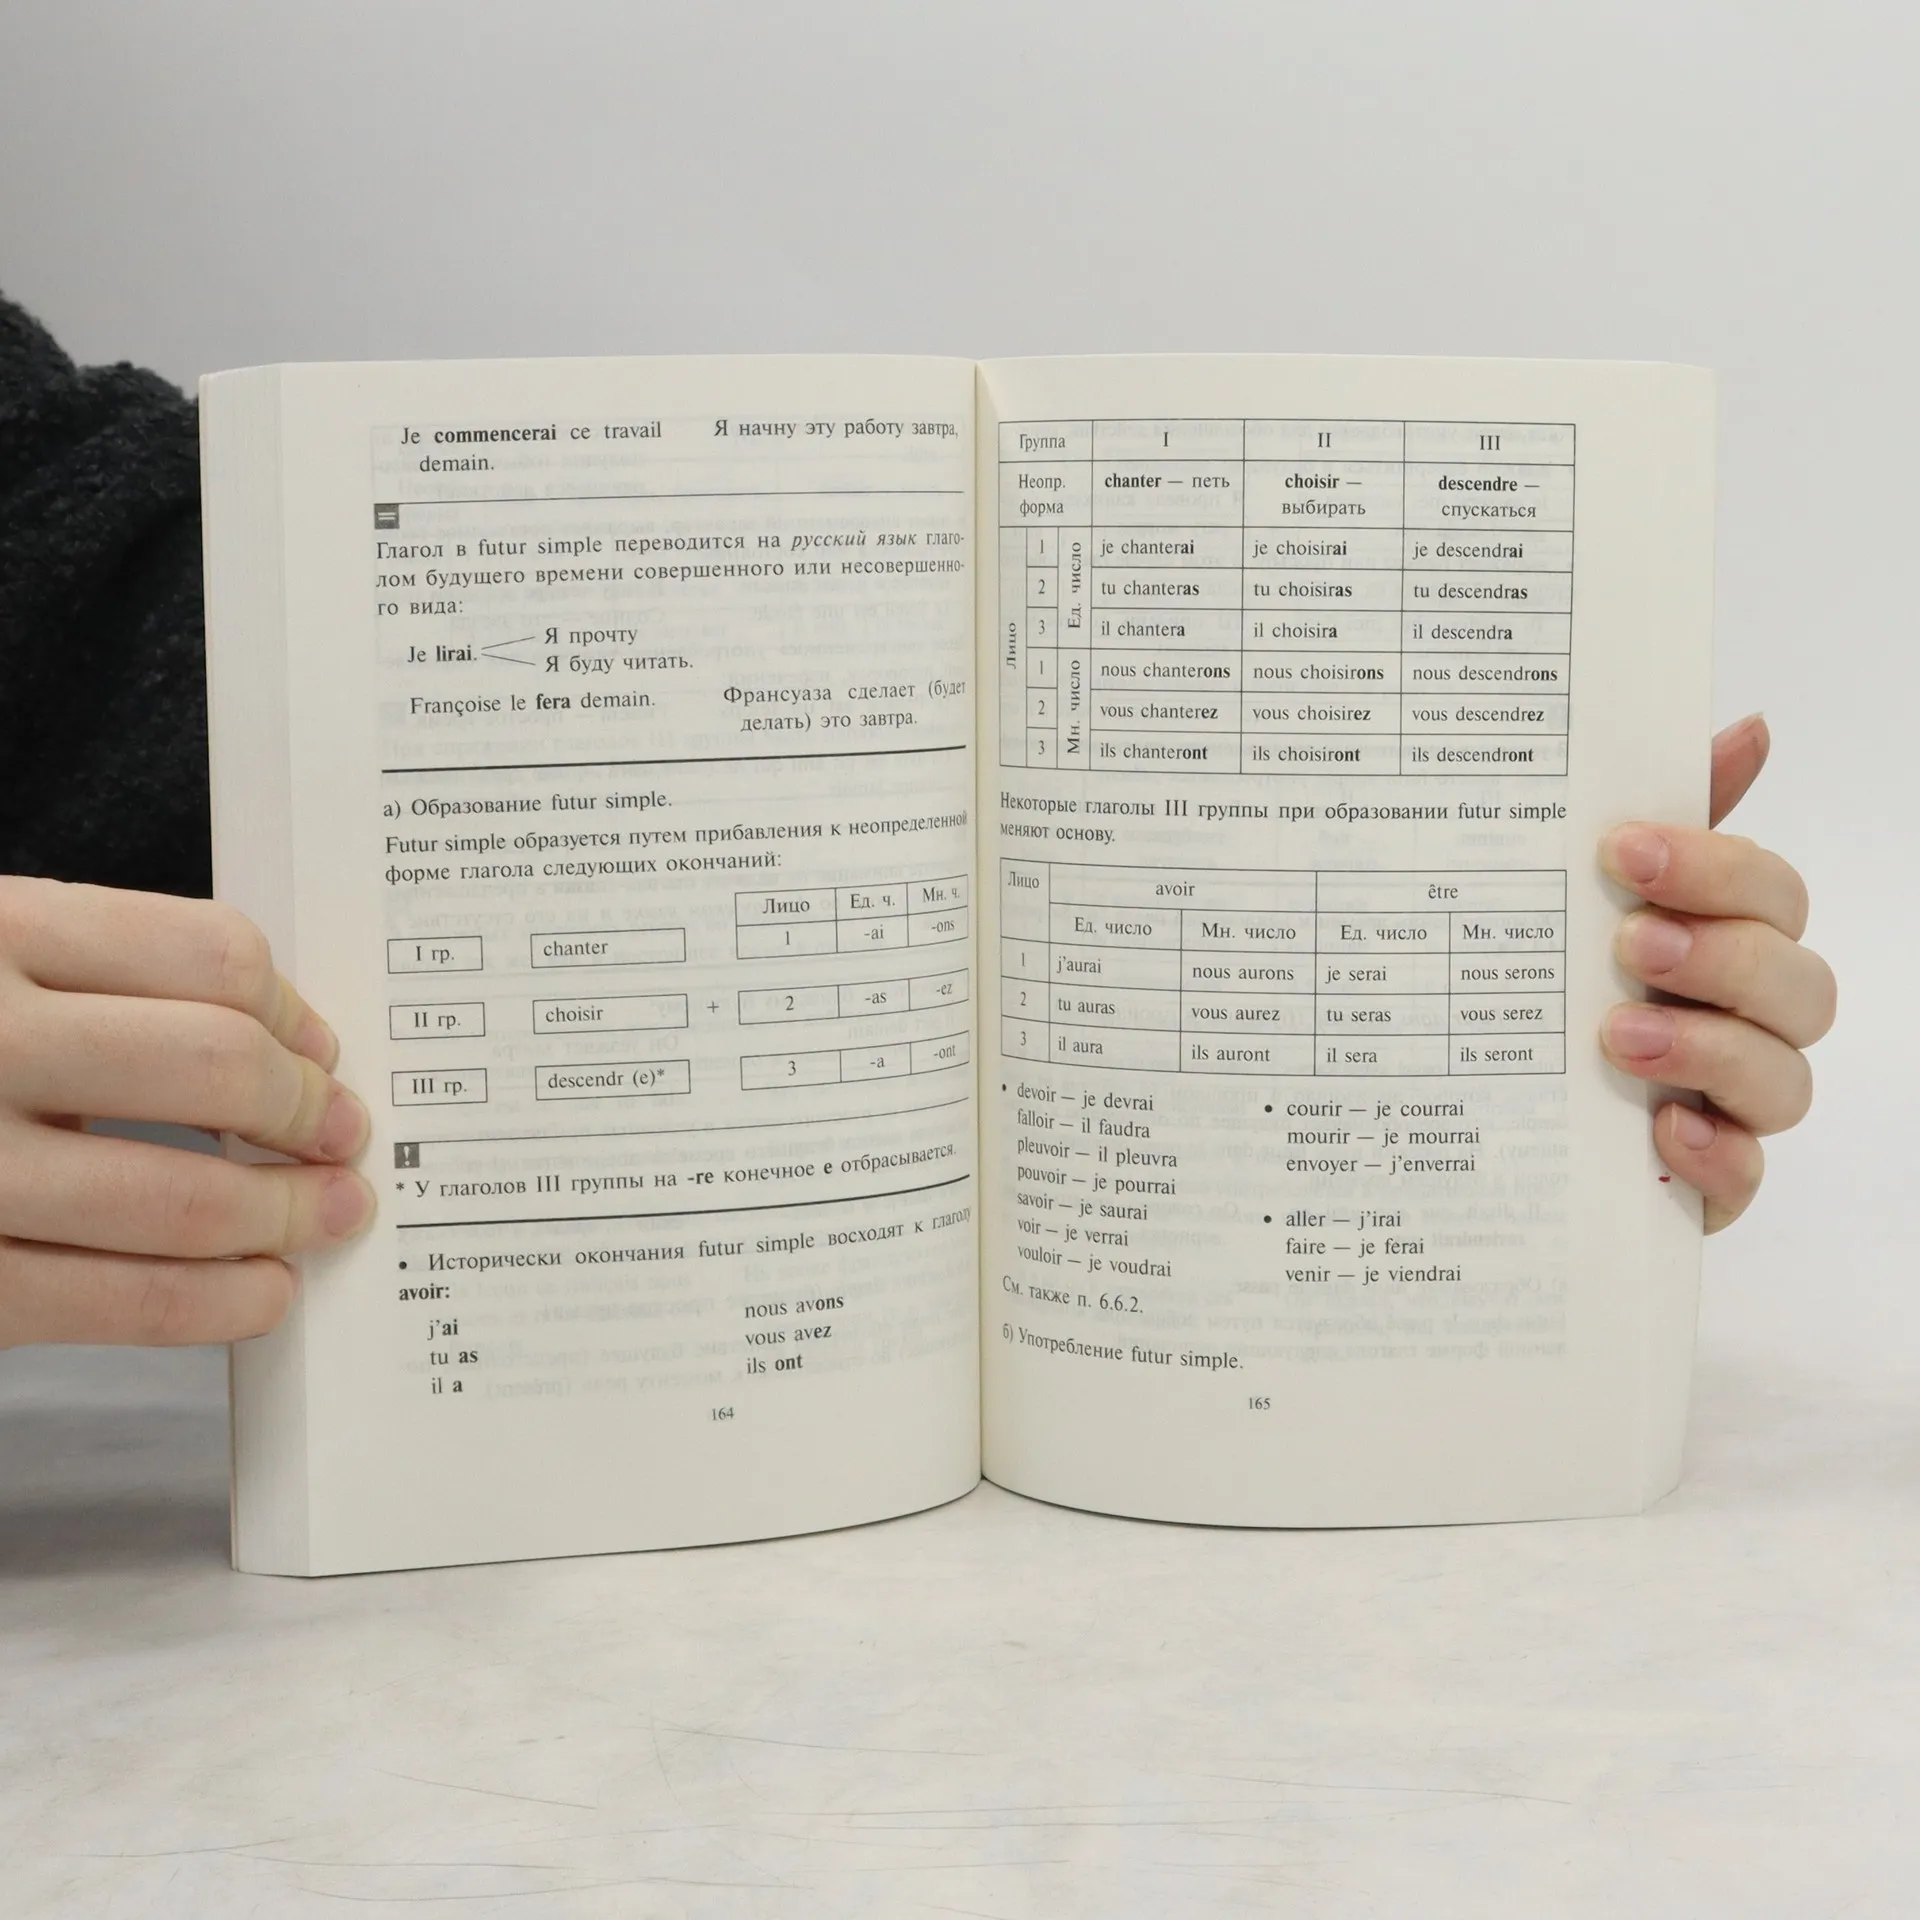 Je commencerai ce travail Я начну эту работу завтра,
demain.
=
Глагол в futur simple переводится на русский язык глаго-
лом будущего времени совершенного или несовершенно-
го вида:
Je lirai. Я прочту
Я буду читать.
Françoise le fera demain. Франсуаза сделает (будет
делать) это завтра.
а) Образование futur simple.
Futur simple образуется путем прибавления к неопределенной
форме глагола следующих окончаний:
Лицо Ед. ч. Мн. ч.
I гр. chanter 1 -ai -ons
II гр. choisir + 2 -as -ez
III гр. descendr (e)* 3 -a -ont
!
* У глаголов III группы на -re конечное e отбрасывается.
• Исторически окончания futur simple восходят к глаголу
avoir:
j'ai nous avons
tu as vous avez
il a ils ont
164
Группа I II III
Неопр. chanter — петь choisir — descendre —
форма выбирать спускаться
Лицо
Ед. число
1 je chanterai je choisirai je descendrai
2 tu chanteras tu choisiras tu descendras
3 il chantera il choisira il descendra
Мн. число
1 nous chanterons nous choisirons nous descendrons
2 vous chanterez vous choisirez vous descendrez
3 ils chanteront ils choisiront ils descendront
Некоторые глаголы III группы при образовании futur simple
меняют основу.
Лицо avoir être
Ед. число Мн. число Ед. число Мн. число
1 j'aurai nous aurons je serai nous serons
2 tu auras vous aurez tu seras vous serez
3 il aura ils auront il sera ils seront
• devoir — je devrai
falloir — il faudra
pleuvoir — il pleuvra
pouvoir — je pourrai
savoir — je saurai
voir — je verrai
vouloir — je voudrai
• courir — je courrai
mourir — je mourrai
envoyer — j'enverrai
• aller — j'irai
faire — je ferai
venir — je viendrai
См. также п. 6.6.2.
б) Употребление futur simple.
165